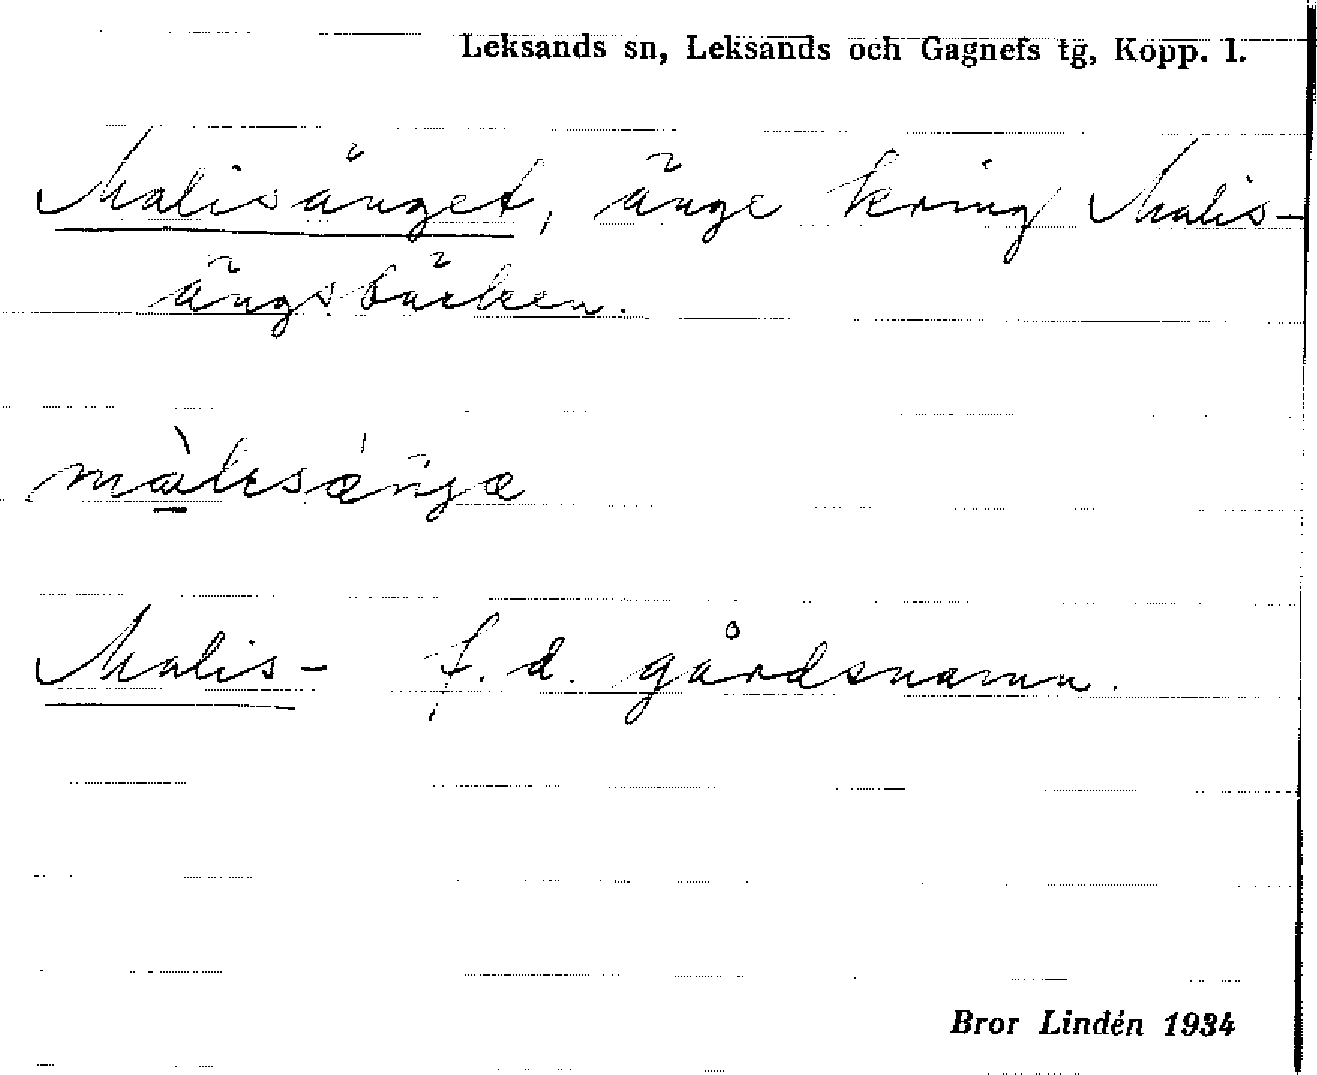 Leksands sn, Leksands och Gagnefs tg, Kopp. l.
Malisänget, änge kring Malis-
ängsbäcken.
màlɩsǽŋ́ɡæ
Malis- f.d. gårdsnamn.
Bror Lindén 1934